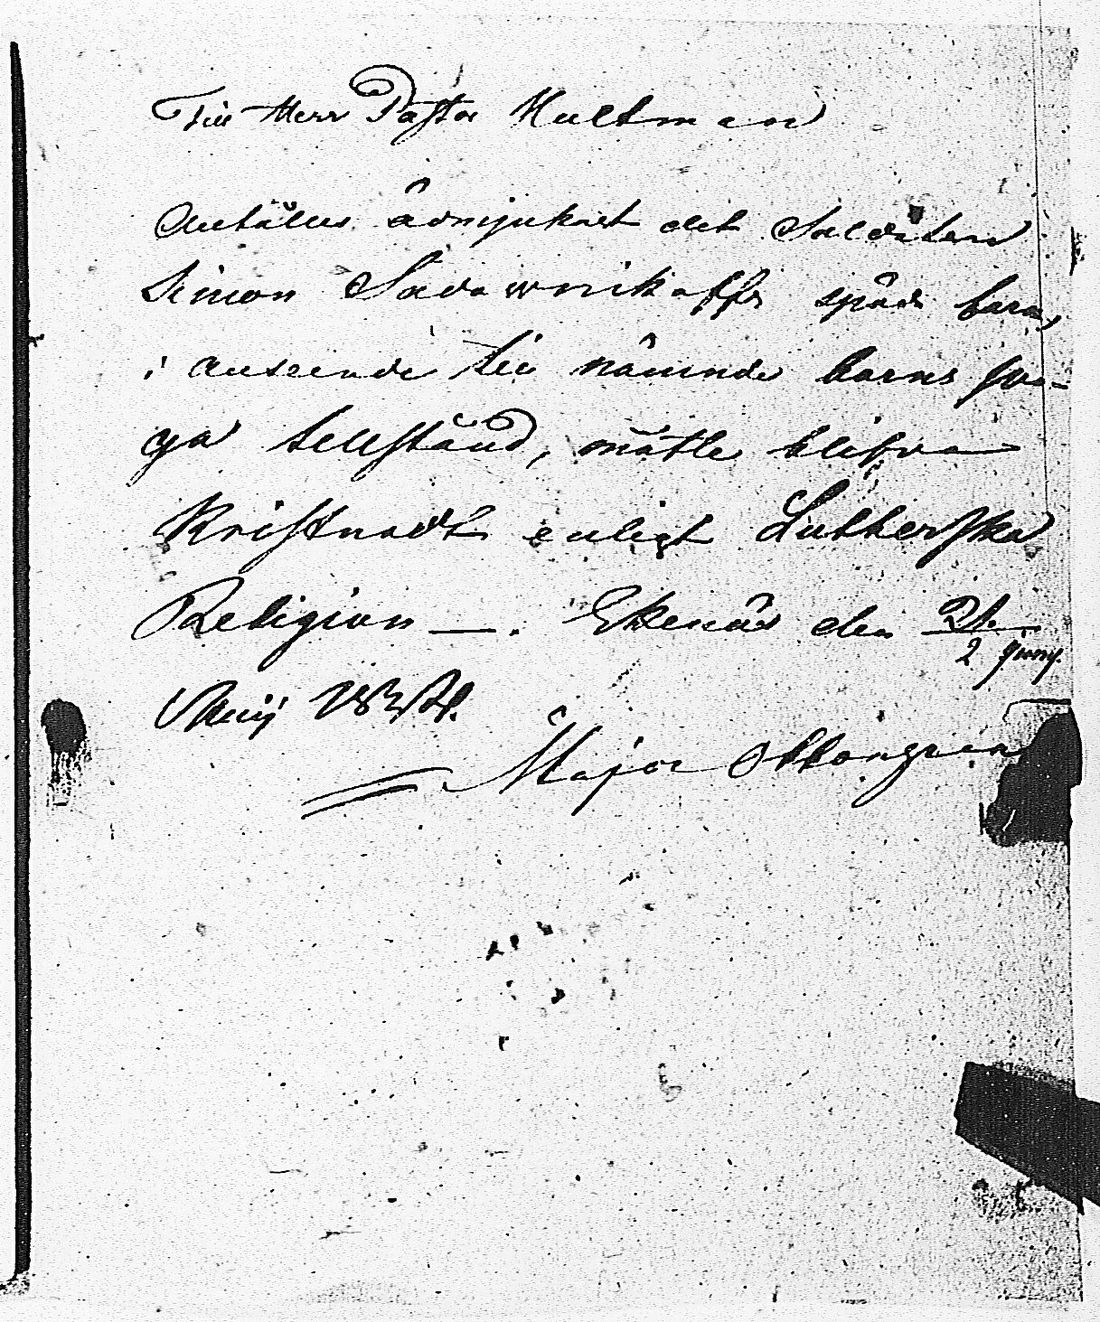 Till Herr Pastor Hultman
Anhålles ödmjukast det Soldaten
Simon Sadownikoffs späda barn,
i anseende till nämnde barns sva-
ga tillstånd, måtte blifva
Kristnadt enligt Lutherska
Religion —. Ekenäs den 21.
2 Juny.
Maij 1834.
Major